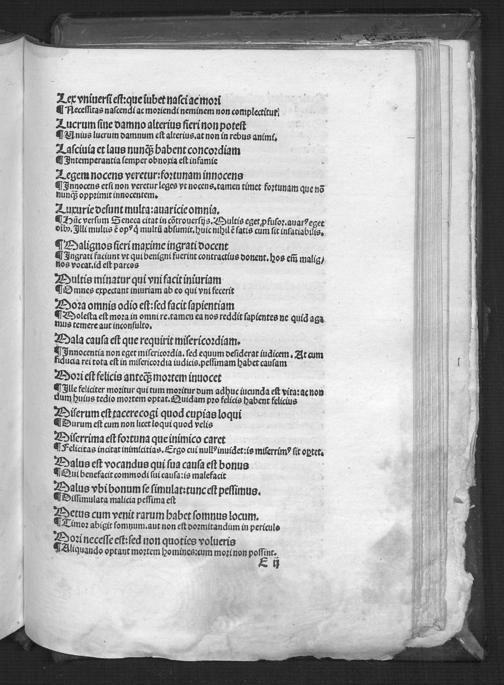 Lex vniuersi est: que iubet nasci ac mori
¶ Necessitas nascendi ac moriendi neminem non complectitur.
Lucrum sine damno alterius fieri non potest
¶ Vnius lucrum damnum est alterius. at non in rebus animi.
Lasciuia et laus nunq̃ habent concordiam
¶ Intemperantia semper obnoxia est infamie
Legem nocens veretur: fortunam innocens
¶ Innocens etsi non veretur leges vt nocens. tamen timet fortunam que nõ
nunq̃ opprimit innocentem.
Luxurie desunt multa: auaricie omnia.
¶ Hũc versum Seneca citat in cõtrouersijs. Multis eget, ꝓfusor. auarꝰ eget
oĩbꝰ. Illi multis ẽ opꝰ q̇ multũ absumit. huic nihil ẽ satis cum sit insatiabilis.
¶ Malignos fieri maxime ingrati docent
¶ Ingrati faciunt vt qui benigni fuerint contractius donent. hos em̃ malig/
nos vocat. id est parcos
Multis minatur qui vni facit iniuriam
¶ Omnes expectant iniuriam ab eo qui vni fecerit
Mora omnis odio est: sed facit sapientiam
¶ Molesta est mora in omni re. tamen ea nos reddit sapientes ne quid aga
mus temere aut inconsulto.
Mala causa est que requirit misericordiam.
¶ Innocentia non eget misericordia. sed equum desiderat iudicem. At cum
fiducia rei tota est in misericordia iudicis. pessimam habet causam
Mori est felicis anteq̃ mortem inuocet
¶ Ille feliciter moritur qui tum moritur dum adhuc iucunda est vita: ac non
dum huius tedio mortem optat. Quidam pro felicis habent felicius
Miserum est tacere cogi quod cupias loqui
¶ Durum est cum non licet loqui quod velis
Miserrima est fortuna que inimico caret
¶ Felicitas incitat inimicitias. Ergo cui nullꝰ inuidet: is miserrimꝰ sit oꝑtet.
Malus est vocandus qui sua causa est bonus
¶ Qui benefacit commodi sui causa: is malefacit
Malus vbi bonum se simulat: tunc est pessimus.
¶ Dissimulata malicia pessima est
Metus cum venit rarum habet somnus locum.
¶ Timor abigit somnum. aut non est dormitandum in periculo
Mori necesse est: sed non quoties volueris
¶ Aliquando optant mortem homines: cum mori non possint.
E ij